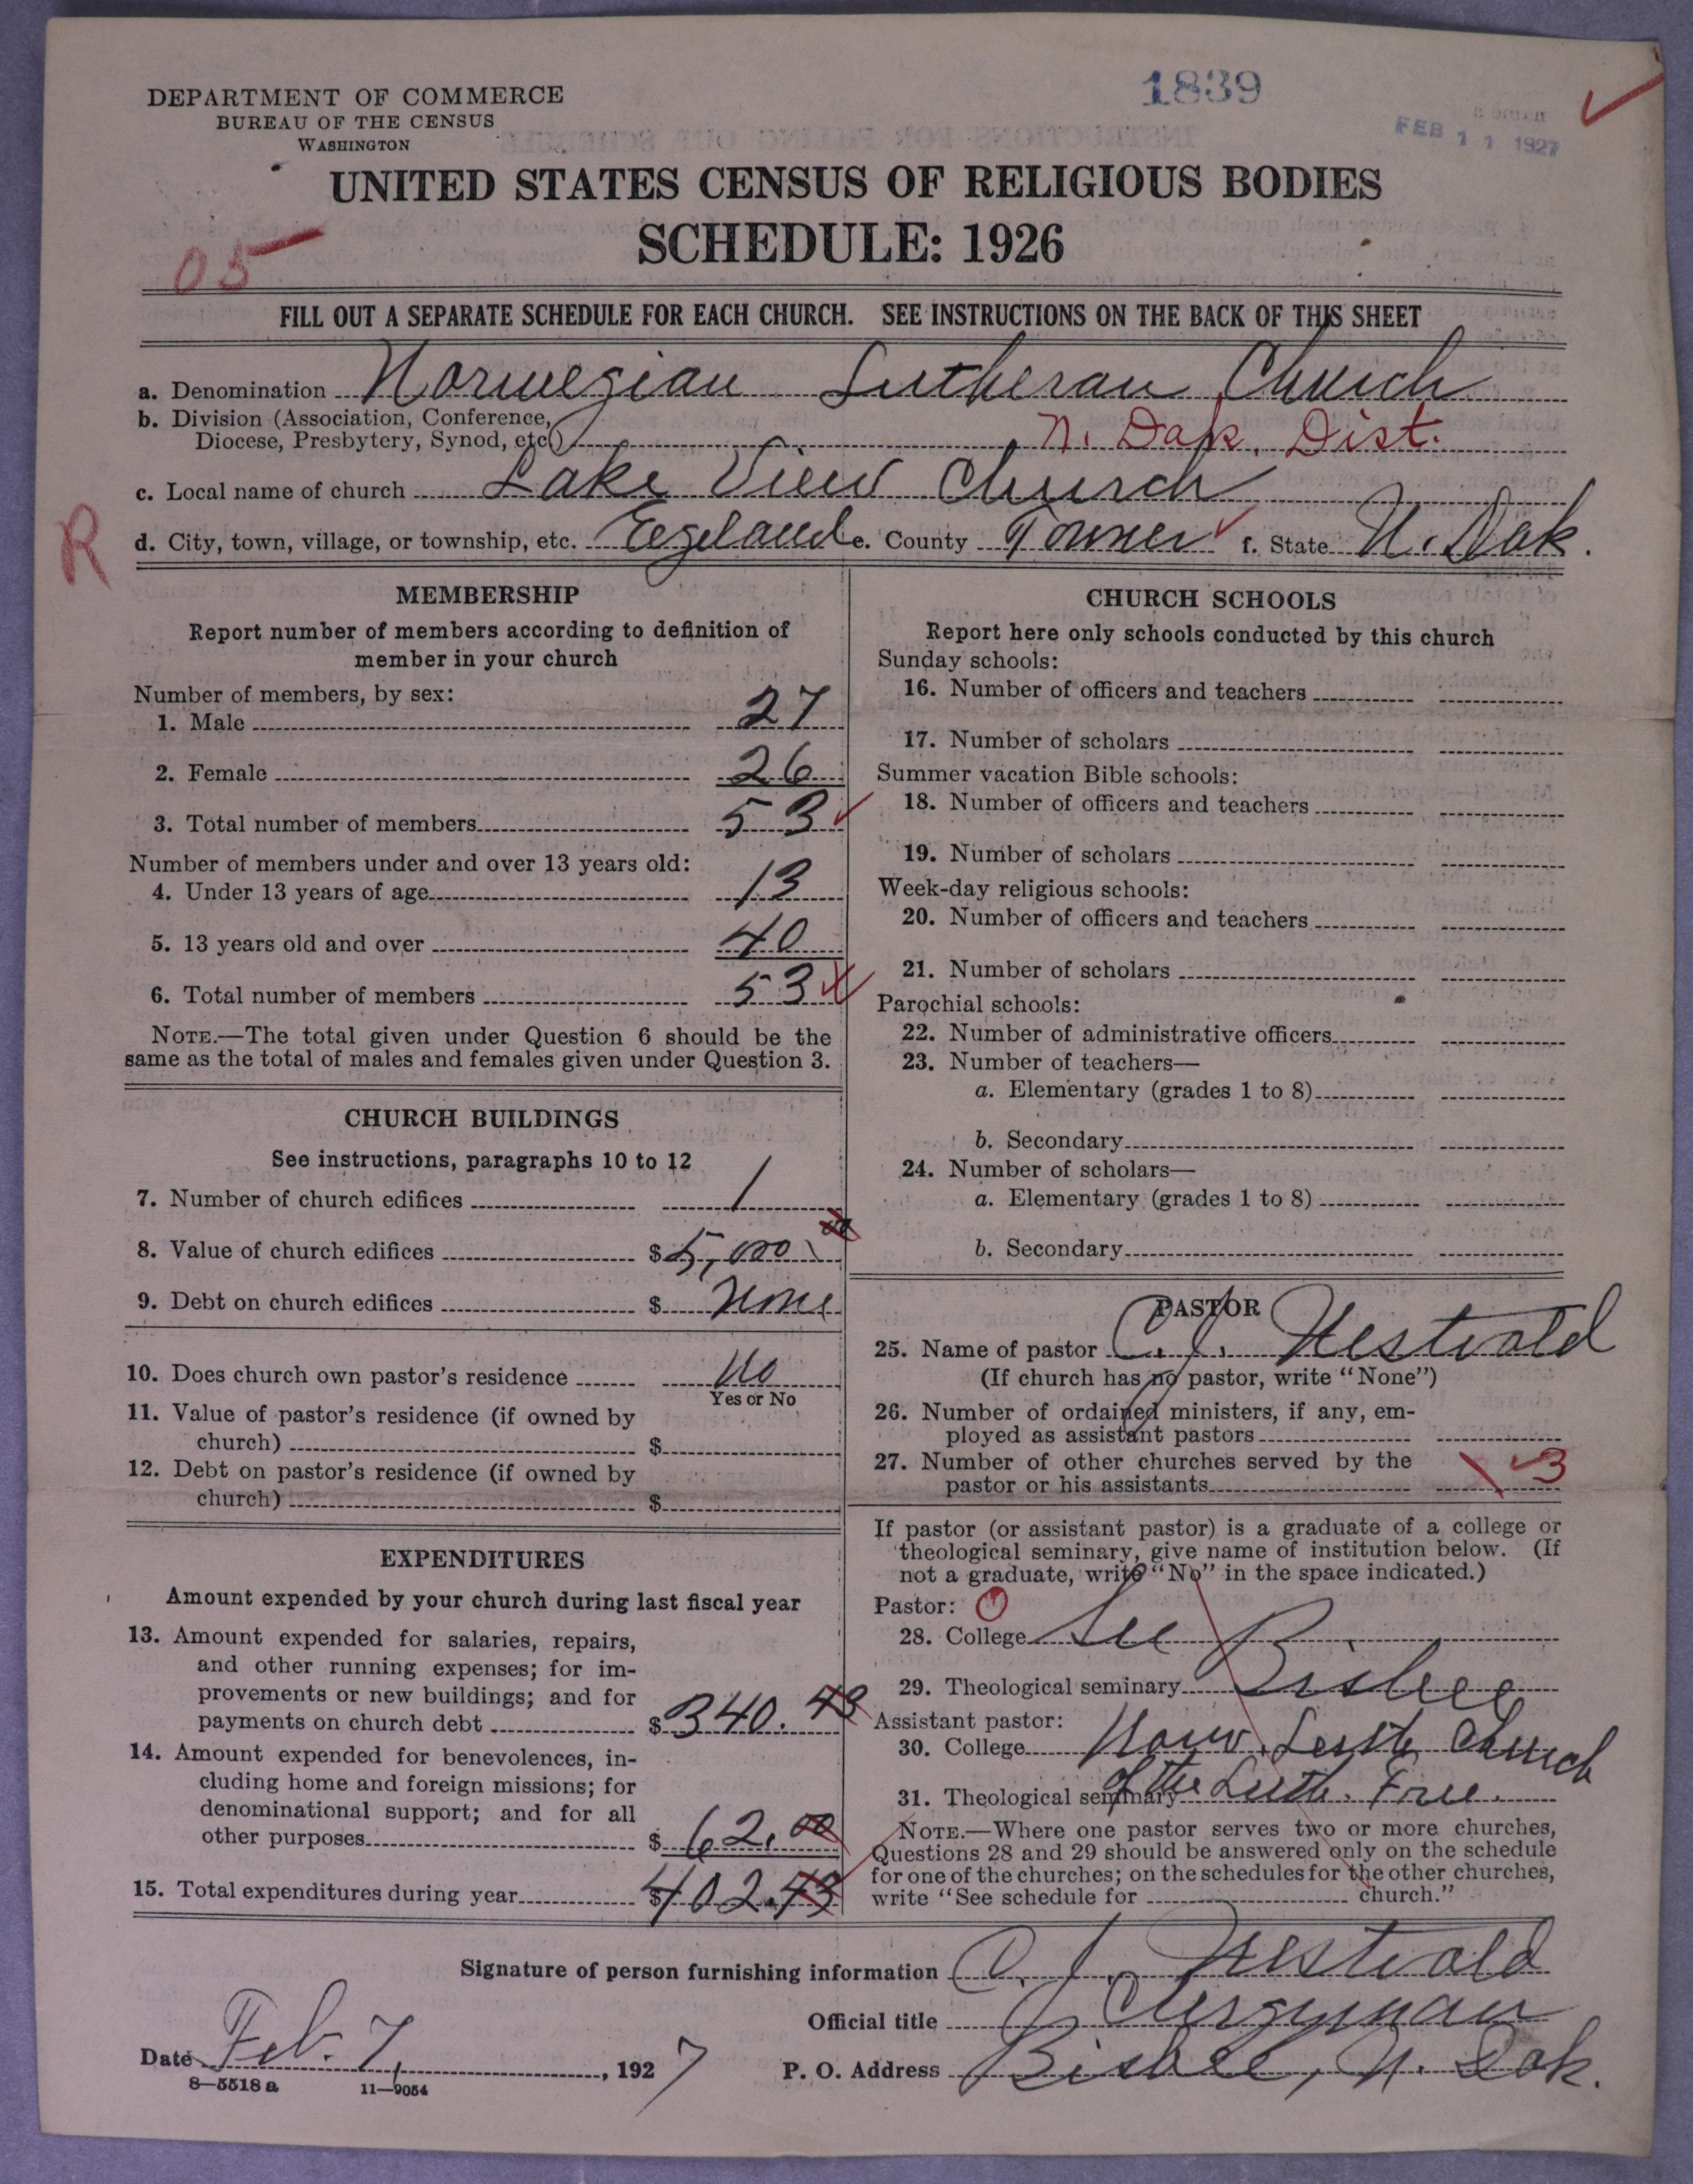 1839
FEB 11 1927
DEPARTMENT OF COMMERCE
BUREAU OF THE CENSUS
WASHINGTON
UNITED STATES CENSUS OF RELIGIOUS BODIES
SCHEDULE: 1926
05
FILL OUT A SEPARATE SCHEDULE FOR EACH CHURCH. SEE INSTRUCTIONS ON THE BACK OF THIS SHEET
a. Denomination Norwegian Lutheran Church
b. Division (Association, Conference,
Diocese, Presbytery, Synod, etc.) N. Dak. Dist.
c. Local name of church Lake View Church
R
d. City, town, village, or township, etc. Egeland e. County Towner f. State N. Dak.
MEMBERSHIP
Report number of members according to definition of
member in your church
Number of members, by sex:
1. Male 27
2. Female 26
3. Total number of members 53
Number of members under and over 13 years old:
4. Under 13 years of age 13
5. 13 years old and over 40
6. Total number of members 53
NOTE.—The total given under Question 6 should be the
same as the total of males and females given under Question 3.
CHURCH BUILDINGS
See instructions, paragraphs 10 to 12
7. Number of church edifices 1
8. Value of church edifices $5,000.00
9. Debt on church edifices $ None
10. Does church own pastor's residence No
Yes or No
11. Value of pastor's residence (if owned by
church) $
12. Debt on pastor's residence (if owned by
church) $
EXPENDITURES
Amount expended by your church during last fiscal year
13. Amount expended for salaries, repairs,
and other running expenses; for im-
provements or new buildings; and for
payments on church debt $340.43
14. Amount expended for benevolences, in-
cluding home and foreign missions; for
denominational support; and for all
other purposes $62.00
15. Total expenditures during year $402.43
CHURCH SCHOOLS
Report here only schools conducted by this church
Sunday schools:
16. Number of officers and teachers
17. Number of scholars
Summer vacation Bible schools:
18. Number of officers and teachers
19. Number of scholars
Week-day religious schools:
20. Number of officers and teachers
21. Number of scholars
Parochial schools:
22. Number of administrative officers
23. Number of teachers—
a. Elementary (grades 1 to 8)
b. Secondary
24. Number of scholars—
a. Elementary (grades 1 to 8)
b. Secondary
PASTOR
25. Name of pastor C. J. Nestvold
(If church has no pastor, write "None")
26. Number of ordained ministers, if any, em-
ployed as assistant pastors
27. Number of other churches served by the
pastor or his assistants 3
If pastor (or assistant pastor) is a graduate of a college or
theological seminary, give name of institution below. (If
not a graduate, write "No" in the space indicated.)
Pastor:
28. College See
29. Theological seminary Bisbee
Assistant pastor:
30. College Norw. Luth Church
31. Theological seminary of the Luth. Free.
NOTE.—Where one pastor serves two or more churches,
Questions 28 and 29 should be answered only on the schedule
for one of the churches; on the schedules for the other churches,
write "See schedule for church."
Signature of person furnishing information C. J. Nestvold
Official title Clergyman
Date Feb. 7, 1927 P. O. Address Bisbee, N. Dak.
8—5518 a 11—9054